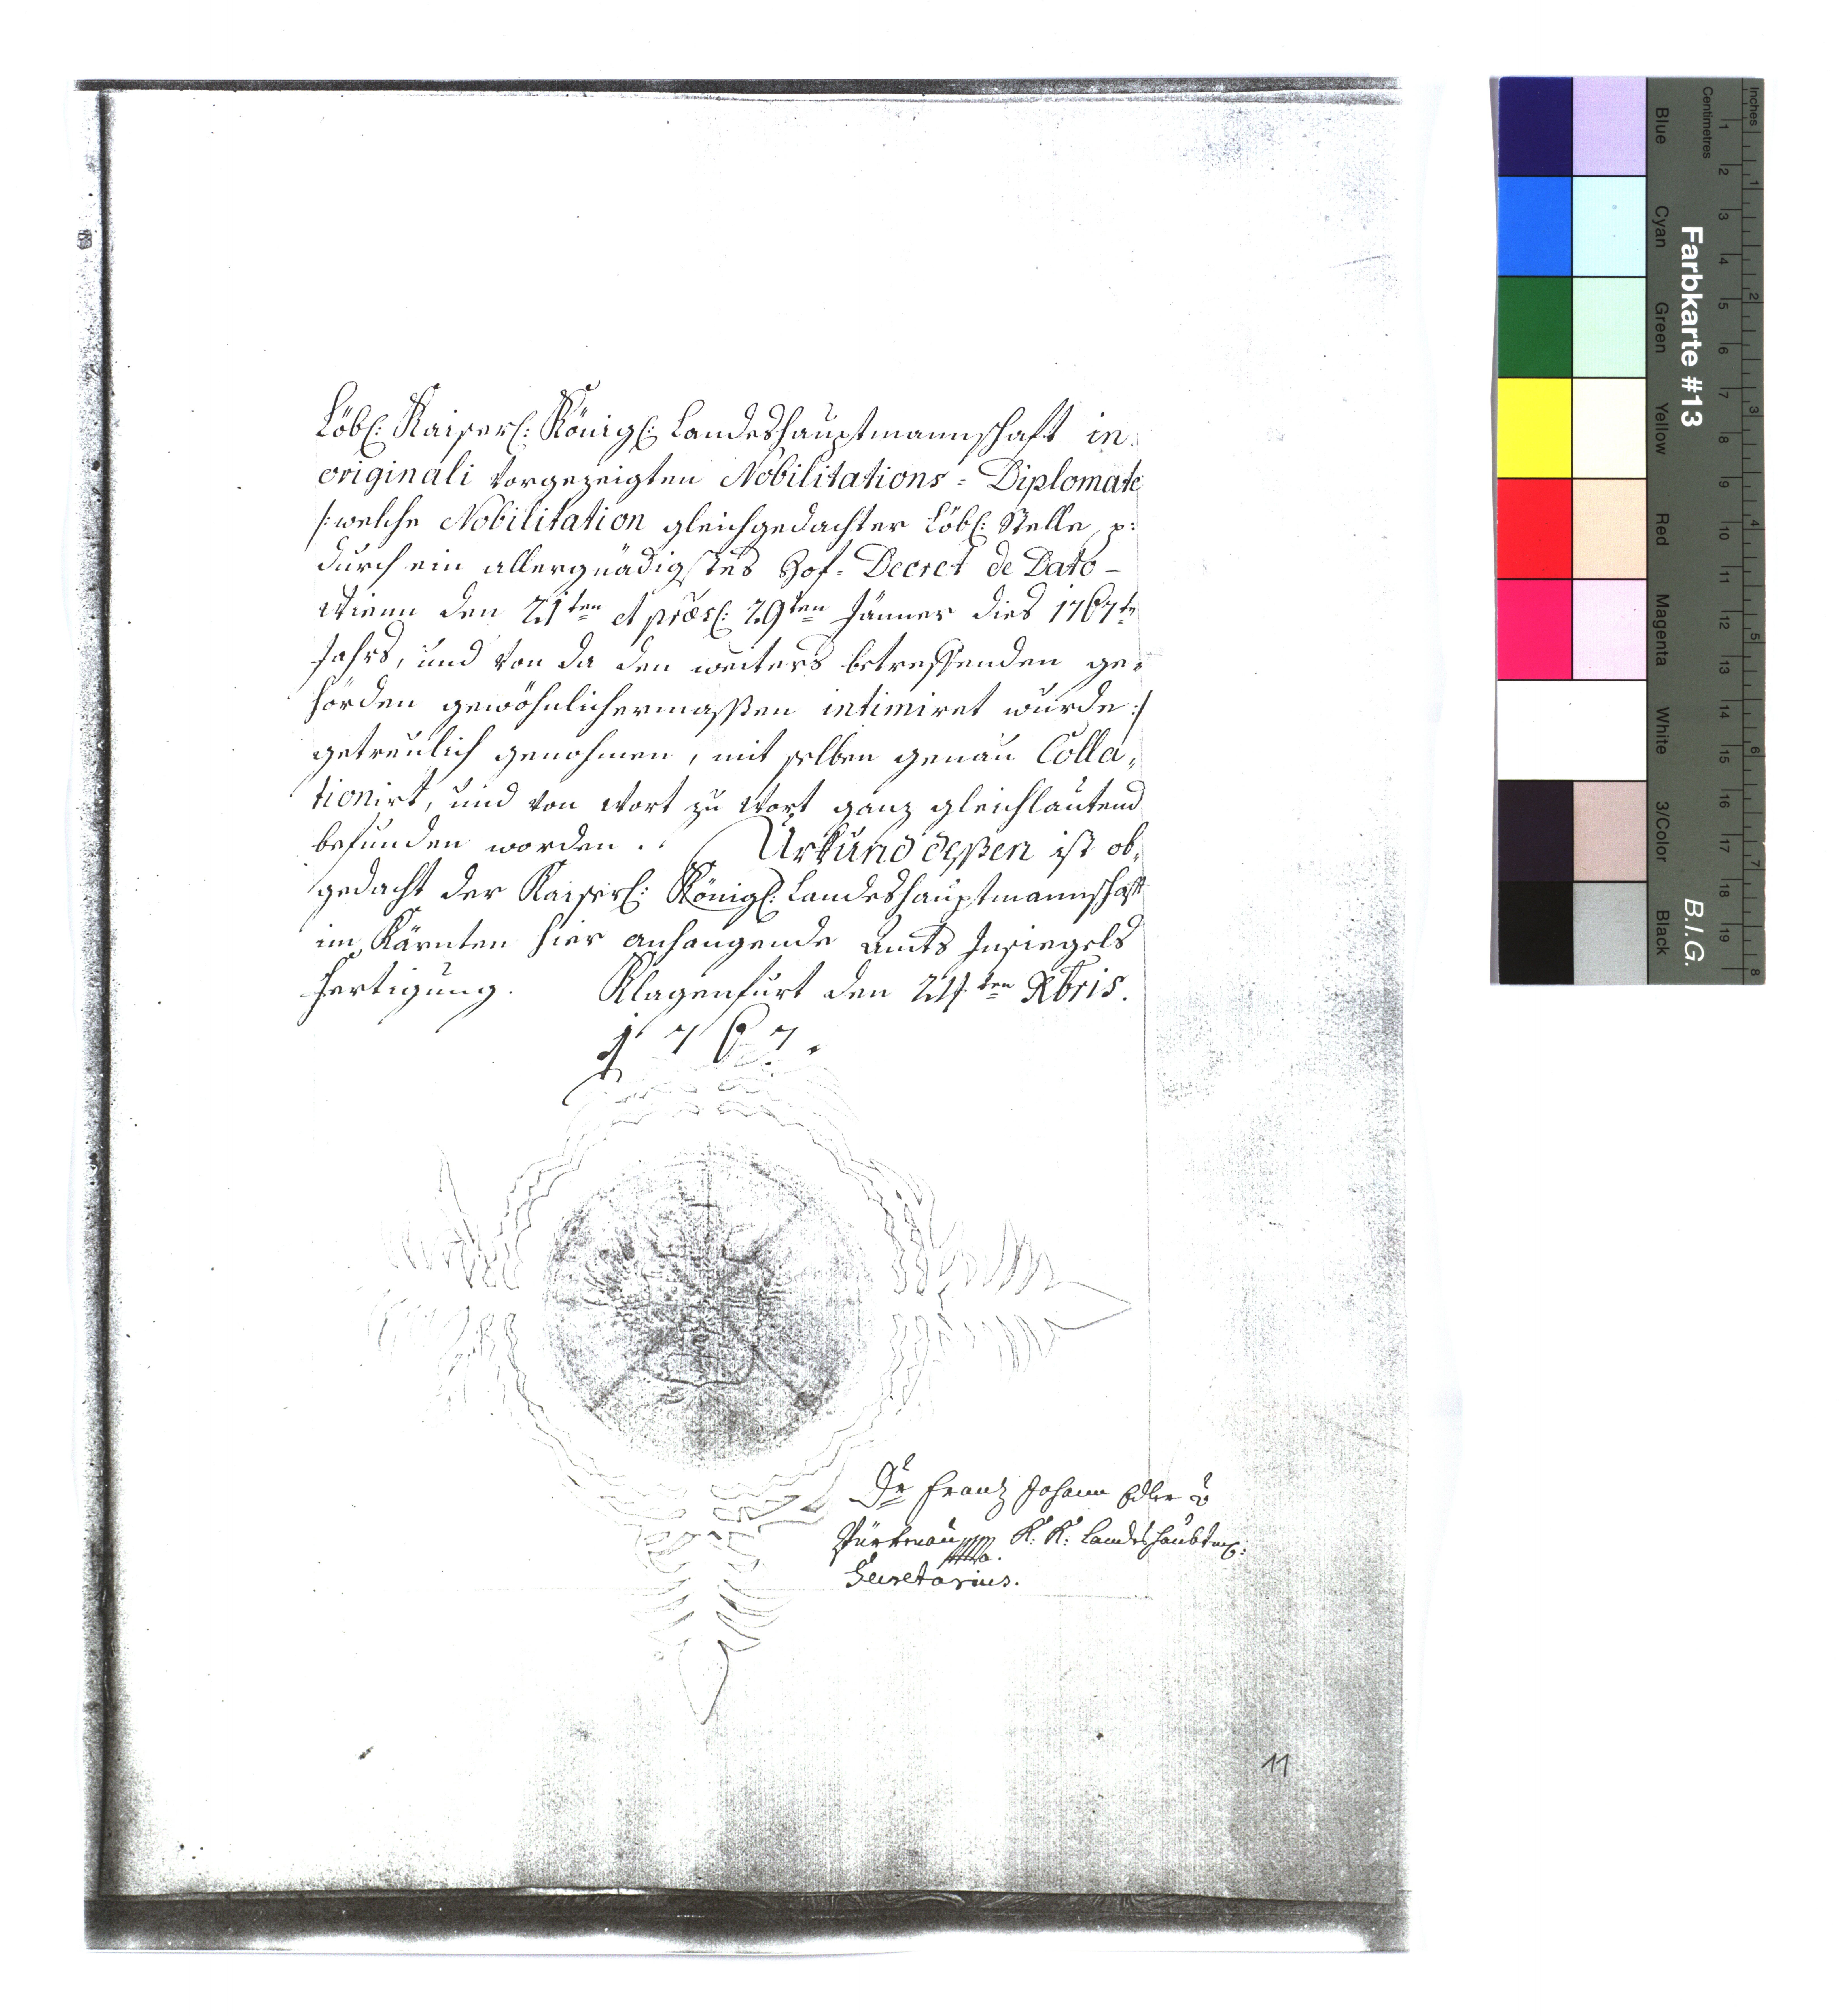 Löbl: Kaiserl: Königl: Landeshauptmannschaft in
originali vorgezeigten Nobilitations = Diplomate
/: welche Nobilitation gleichgedachter Löbl: Stelle p:
durch ein allergnädigstes Hof = Decret de Dato –
Wienn den 21ten et præs: 29ten Jänner dies 1767ten
Jahrs, und von da den weiters betreffenden ge=
hörden gewöhnlichermaßen intimiret wurde :/
getreulich genohmen, mit selben genau Colla=
tionirt, und von Wort zu Wort ganz gleichlautend
befunden worden. Urkund deßen ist ob=
gedacht der Kaiserl: Königl: Landeshauptmannschaft
im Kärnten hier anhangende Amts Insiegels
Fertigung. Klagenfurt den 24ten Xbris.
1767.
Frantz Johann Edler v
K: K: Landshaubtm:
Secretarius.
11
Farbkarte #13
B.I.G.
Inches
Centimetres
1 2 3 4 5 6 7 8 9 10 11 12 13 14 15 16 17 18 19
1 2 3 4 5 6 7 8
Blue
Cyan
Green
Yellow
Red
Magenta
White
3/Color
Black